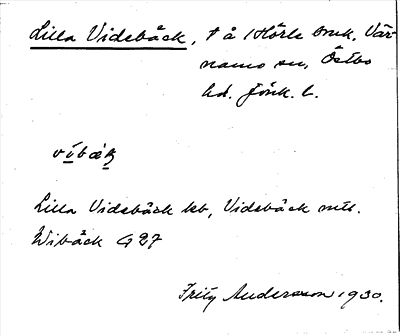 Lilla Videbäck, t å 1 Hörle bruk, Vär-
namo sn, Östbo
hd. Jönk. l.
vibäk
Lilla Videbäck kb, Videbäck mtl.
Wibäck G 27
Fritz Andersson 1930.